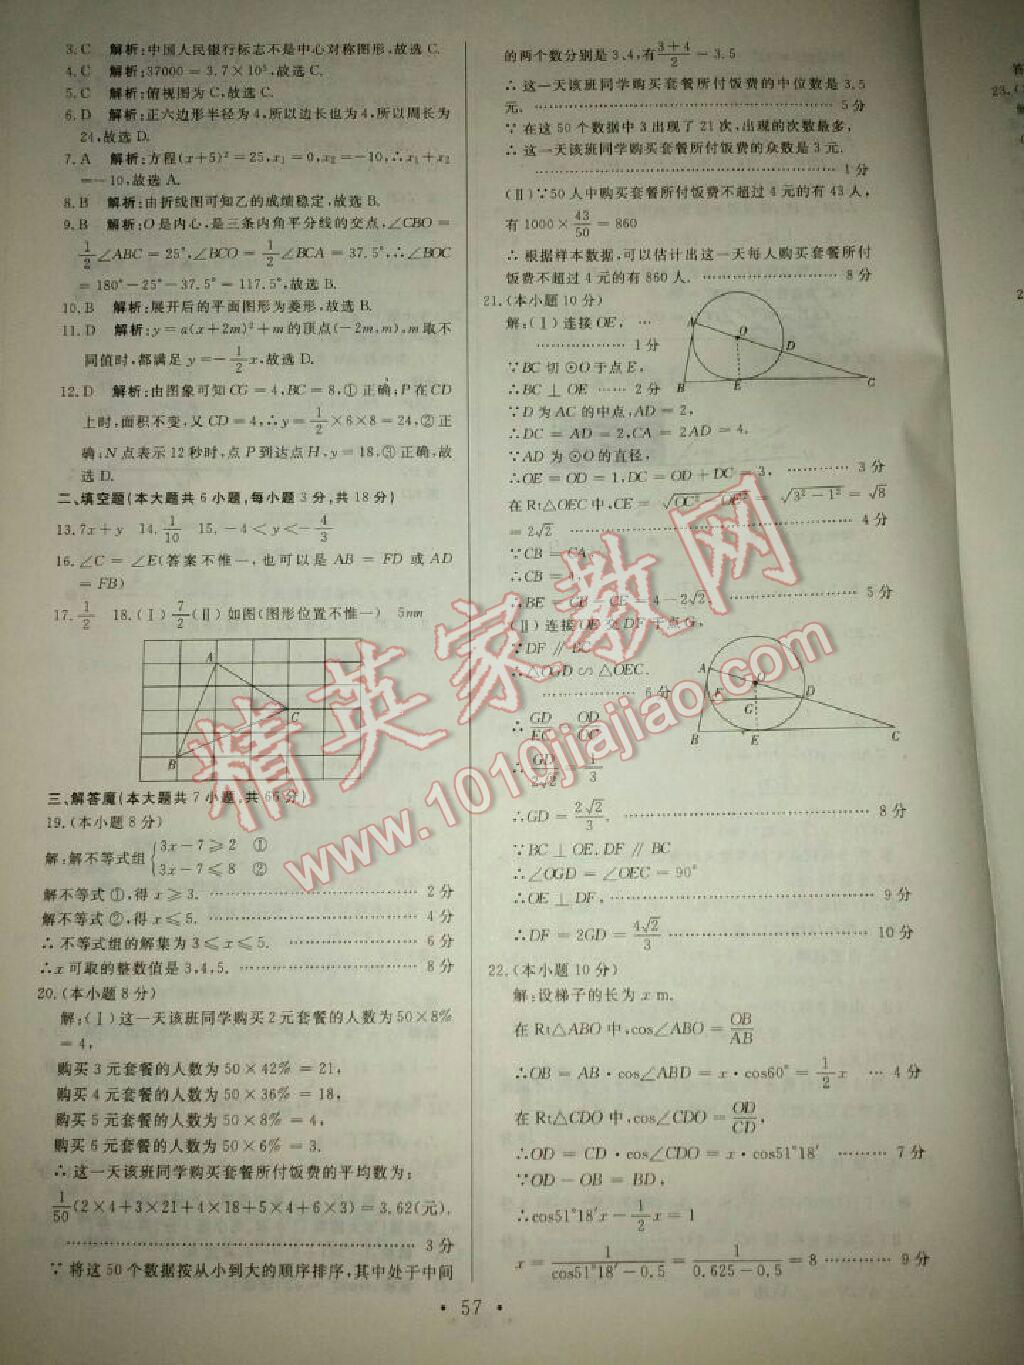 3. C 解析:中国人民银行标志不是中心对称图形,故选 C.
4. C 解析:37000=3.7×10⁵,故选 C.
5. C 解析:俯视图为 C,故选 C.
6. D 解析:正六边形半径为 4,所以边长也为 4,所以周长为
24,故选 D.
7. A 解析:方程(x+5)²=25,x₁=0,x₂=-10,∴x₁+x₂
=-10,故选 A.
8. B 解析:由折线图可知乙的成绩稳定,故选 B.
9. B 解析:O 是内心,是三条内角平分线的交点,∠CBO=
1/2∠ABC=25°,∠BCO=1/2∠BCA=37.5°,∴∠BOC
=180°-25°-37.5°=117.5°,故选 B.
10. B 解析:展开后的平面图形为菱形,故选 B.
11. D 解析:y=a(x+2m)²+m 的顶点(-2m,m),m 取不
同值时,都满足 y=-1/2x,故选 D.
12. D 解析:由图象可知 CG=4,BC=8,①正确;P 在 CD
上时,面积不变,又 CD=4,∴y=1/2×6×8=24,②正
确;N 点表示 12 秒时,点 P 到达点 H,y=18,③正确,故
选 D.
二、填空题(本大题共 6 小题,每小题 3 分,共 18 分)
13. 7x+y 14. 1/10 15. -4<y<-4/3
16. ∠C=∠E(答案不惟一,也可以是 AB=FD 或 AD
=FB)
17. 1/2 18.(Ⅰ)7/2(Ⅱ)如图(图形位置不惟一) 5nm
A
C
B
三、解答魔(本大题共 7 小题,共 66 分)
19.(本小题 8 分)
解:解不等式组{3x-7≥2 ①
3x-7≤8 ②
解不等式①,得 x≥3. ………… 2 分
解不等式②,得 x≤5. ………… 4 分
∴不等式组的解集为 3≤x≤5. ………… 6 分
∴x 可取的整数值是 3,4,5. ………… 8 分
20.(本小题 8 分)
解:(Ⅰ)这一天该班同学购买 2 元套餐的人数为 50×8%
=4,
购买 3 元套餐的人数为 50×42%=21,
购买 4 元套餐的人数为 50×36%=18,
购买 5 元套餐的人数为 50×8%=4,
购买 6 元套餐的人数为 50×6%=3.
∴这一天该班同学购买套餐所付饭费的平均数为:
1/50(2×4+3×21+4×18+5×4+6×3)=3.62(元).
………… 3 分
∵将这 50 个数据按从小到大的顺序排序,其中处于中间
的两个数分别是 3、4,有(3+4)/2=3.5
∴这一天该班同学购买套餐所付饭费的中位数是 3.5
元. ………… 5 分
∵在这 50 个数据中 3 出现了 21 次,出现的次数最多,
∴这一天该班同学购买套餐所付饭费的众数是 3 元.
………… 1 分
(Ⅱ)∵50 人中购买套餐所付饭费不超过 4 元的有 43 人,
有 1000×43/50=860
∴根据样本数据,可以估计出这一天每人购买套餐所付
饭费不超过 4 元的有 860 人. ………… 8 分
21.(本小题 10 分)
解:(Ⅰ)连接 OE, …
………… 1 分
∵BC 切⊙O 于点 E,
∴BC⊥OE …… 2 分
∵D 为 AC 的中点,AD=2,
∴DC=AD=2,CA=2AD=4.
∵AD 为⊙O 的直径,
∴OE=OD=1,DC=OD+DC=3, ………… 3 分
在 Rt△OEC 中,CE=√(OC²-OE²)=√(3²-1²)=√8
=2√2 ………… 4 分
∵CB=CA,
∴CB=4,
∴BE=CB-CE=4-2√2. ………… 5 分
(Ⅱ)连接 OE 交 DF 于点 G,
∵DF∥BC
∴△OGD∽△OEC.
………… 6 分
∴GD/EC=OD/OC
∴GD/2√2=1/3
∴GD=2√2/3. ………… 8 分
∵BC⊥OE,DF∥BC
∴∠OGD=∠OEC=90°
∴OE⊥DF, ………… 9 分
∴DF=2GD=4√2/3 ………… 10 分
A
O
D
B
E
C
A
O
F
G
D
B
E
C
22.(本小题 10 分)
解:设梯子的长为 x m.
在 Rt△ABO 中,cos∠ABO=OB/AB
∴OB=AB·cos∠ABD=x·cos60°=1/2x … 4 分
在 Rt△CDO 中,cos∠CDO=OD/CD,
∴OD=CD·cos∠CDO=x·cos51°18′ ……… 7 分
∵OD-OB=BD,
∴cos51°18′x-1/2x=1
x=1/(cos51°18′-0.5)=1/(0.625-0.5)=8 ………… 9 分
· 57 ·
精英家教网
www.1010jiajiao.com
23.
2